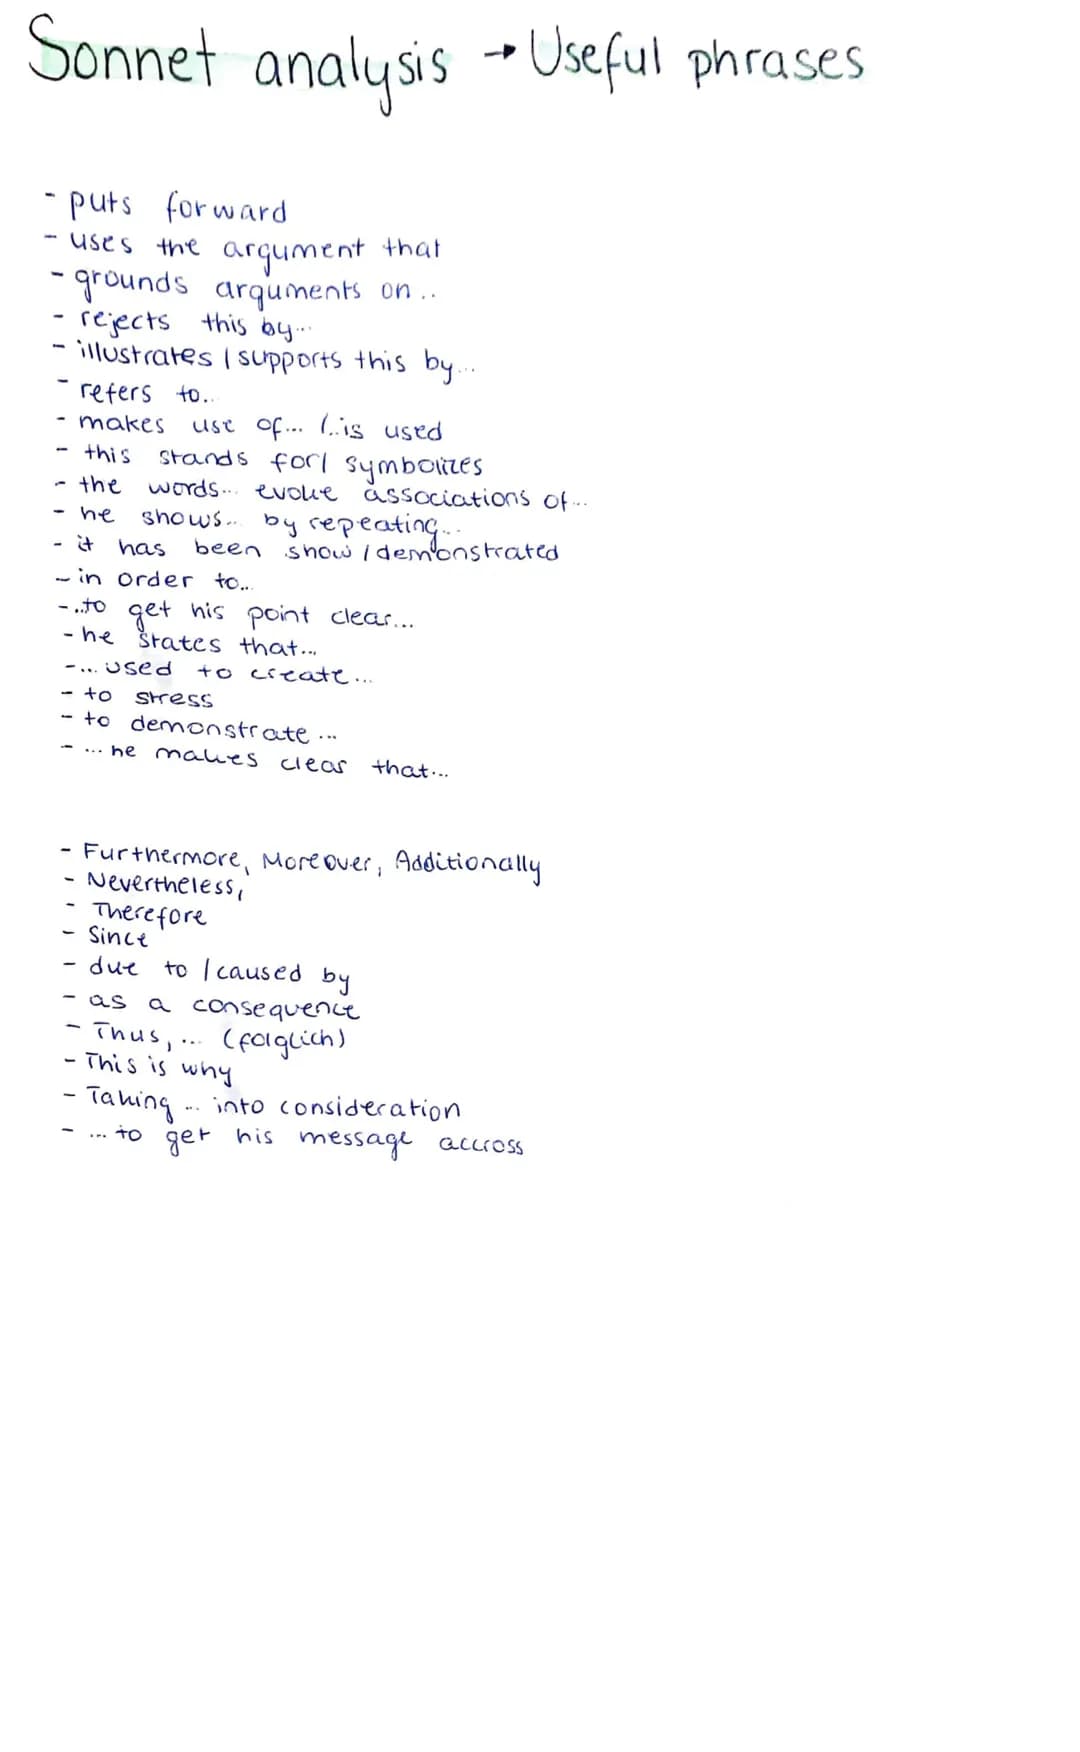 Sonnet analysis → Useful phrases
- puts forward
- uses the argument that
- grounds arguments on..
- rejects this by...
- illustrates / supports this by...
- refers to..
- makes use of... /..is used
- this stands for/ symbolizes
- the words... evoke associations of...
- he shows... by repeating...
- it has been show / demonstrated
- in order to...
- ..to get his point clear...
- he states that...
- ... used to create...
- to stress
- to demonstrate ...
- ... he makes clear that...
- Furthermore, Moreover, Additionally
- Nevertheless,
- Therefore
- Since
- due to / caused by
- as a consequence
- Thus, ... (folglich)
- This is why
- Taking ... into consideration
- ... to get his message accross